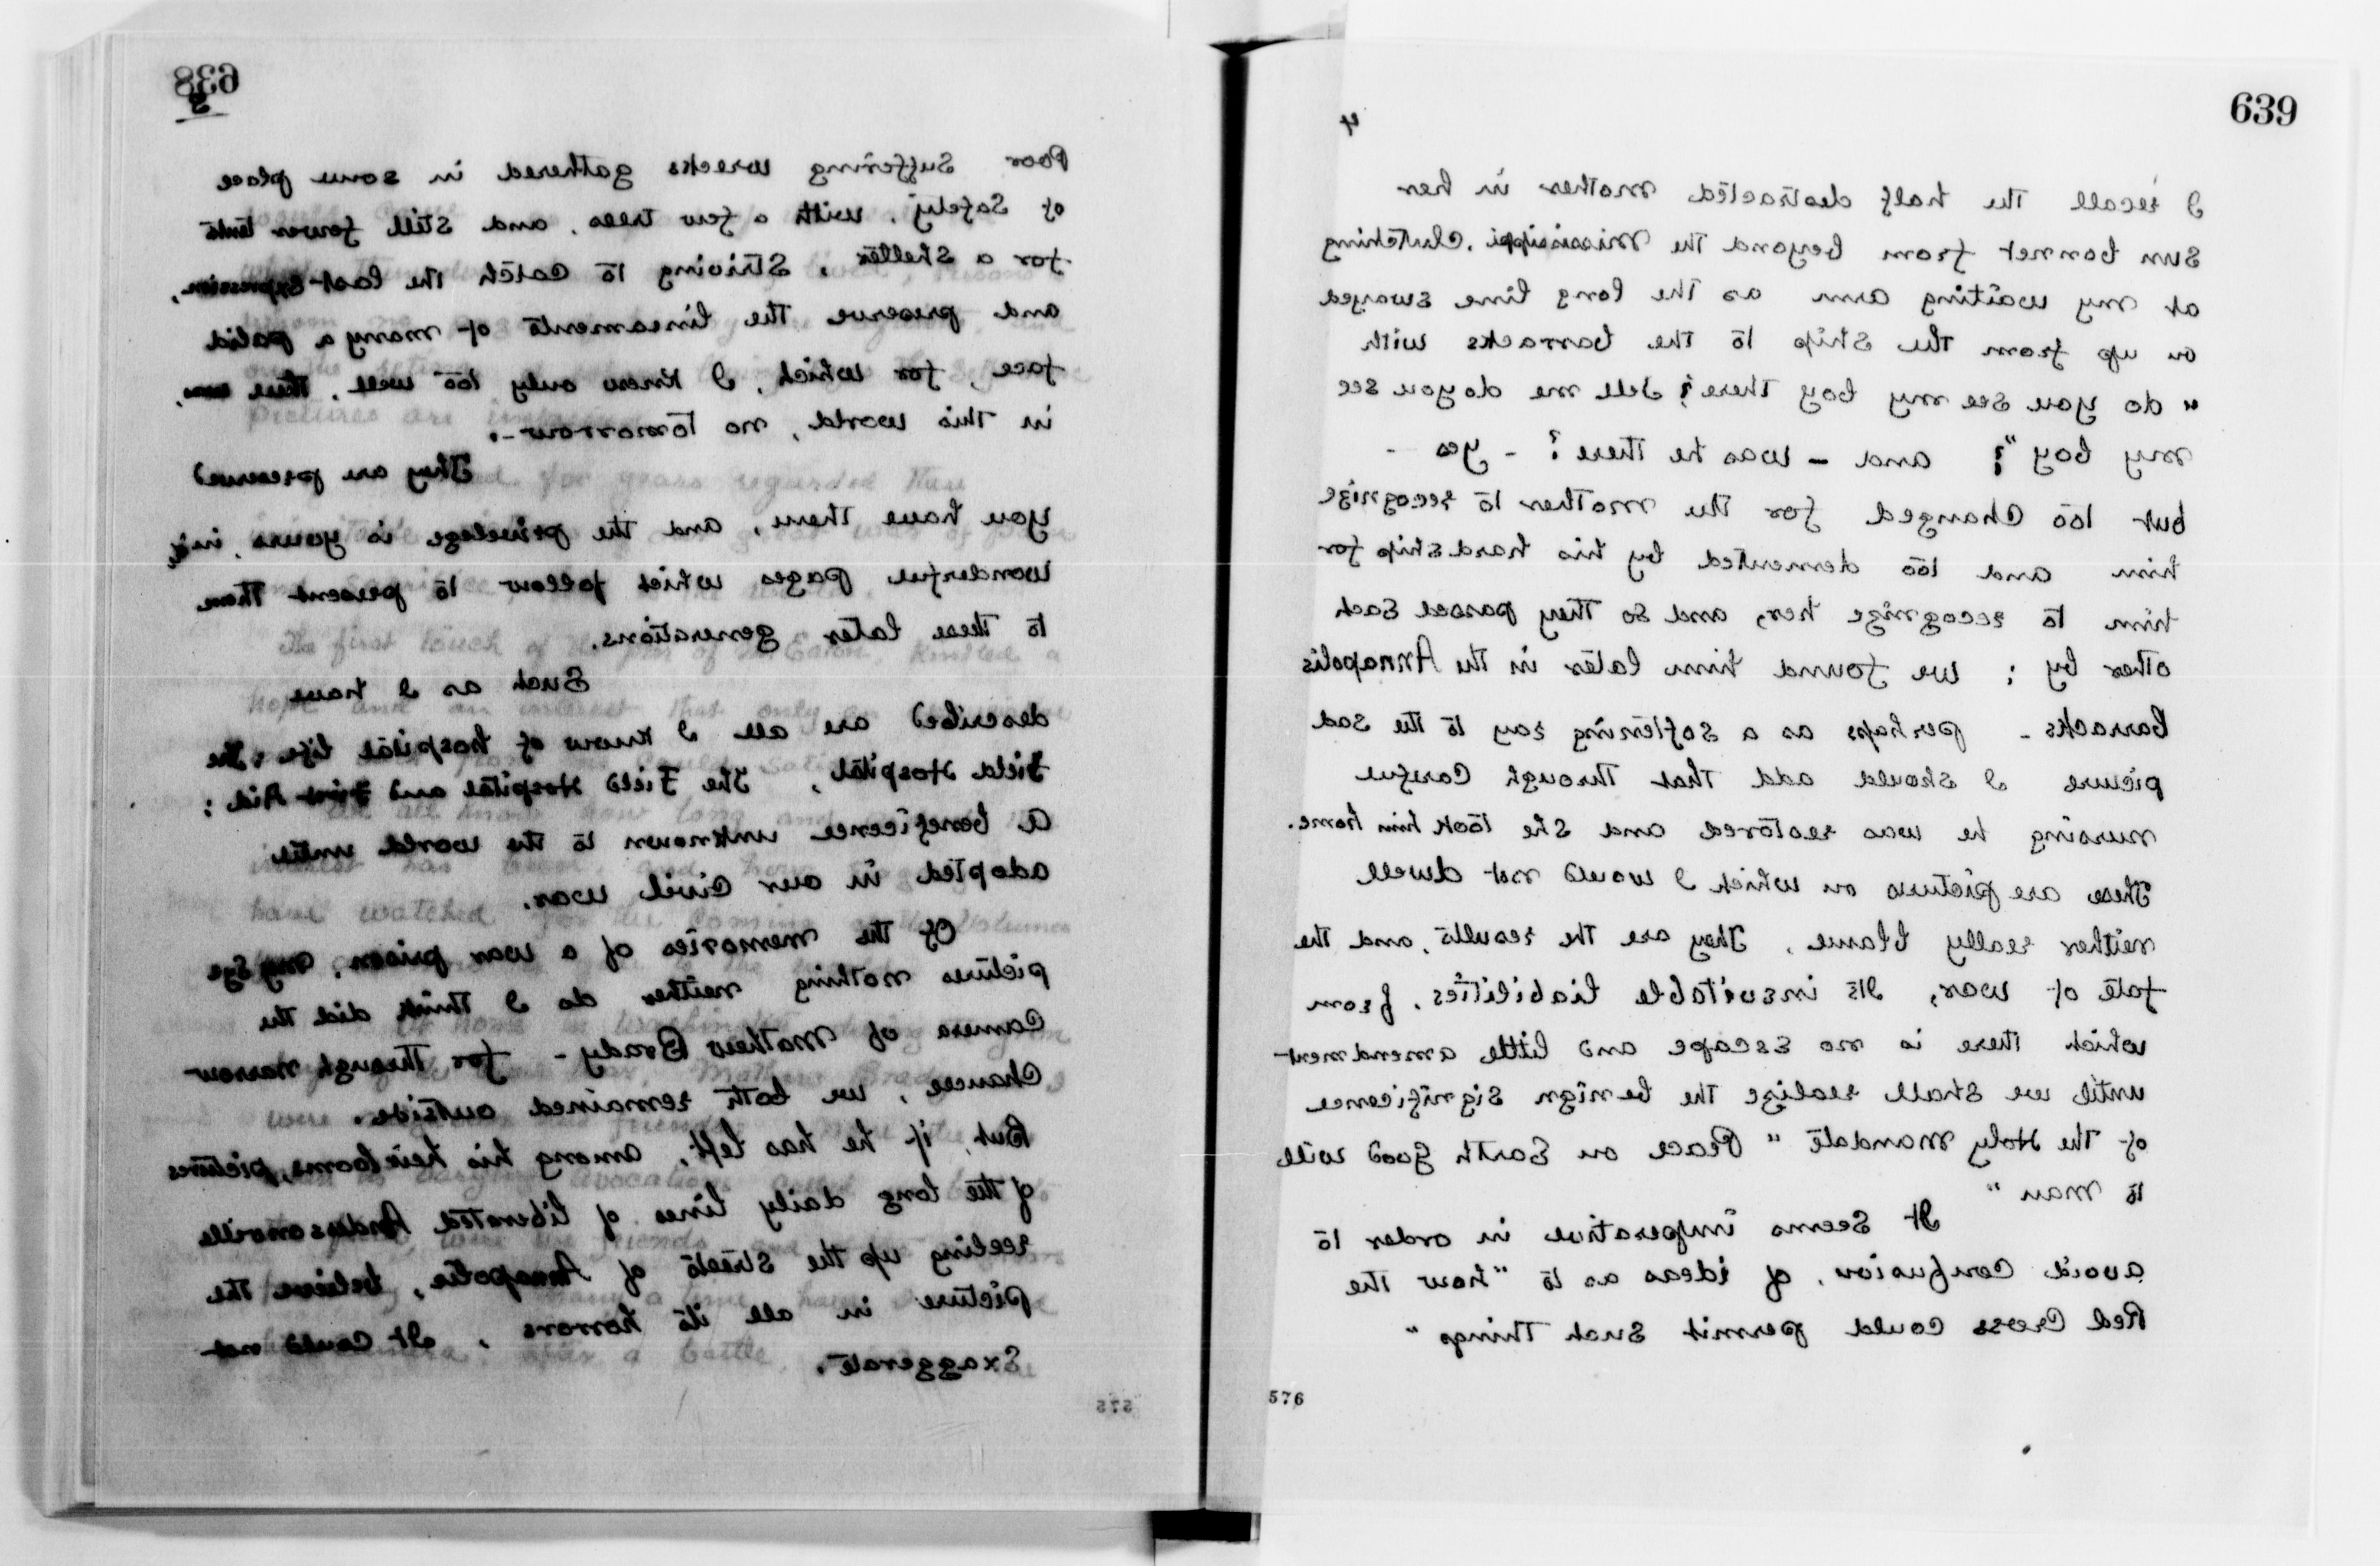 638
3
Poor Suffering wrecks gathered in some place
of Safety, with a few trees, and still fewer tents
for a shelter, Striving to catch the last expression,
and preserve the lineaments of many a palid
face, for which, I knew only too well, there was,
in this world, no tomorrow -.
They are preserved
you have them, and the privelege is yours, in the
wonderful pages which follow to present them
to these later generations.
Such as I have
described are all I know of hospital life. The
Field Hospital, The Field Hospital and First Aid;
a beneficence unknown to the world until
adopted in our Civil war.
Of the memories of a war prison, my Eye
pictures nothing neither do I think did the
Camera of Mathew Brady - for through narrow
Chances, we both remained outside.
But, if he has left, among his heirlooms, pictures
of the long daily lines of liberated Andersonville
reeling up the streets of Annapolis, believe the
picture in all its horrors, It could not
Exaggerate.
575
639
4
I recall the half distracted mother in her
sun bonnet from beyond the Mississippi, Clutching
at my waiting arm as the long line swayed
on up from the ship to the barracks with
"do you see my boy there? tell me do you see
my boy"? and - was he there? - yes -
but too Changed for the mother to recognize
him and too demented by his hardship for
him to recognize her, and so they passed Each
other by; we found him later in the Annapolis
barracks - perhaps as a softening ray to the sad
picture I should add that through Careful
nursing he was restored and she took him home.
These are pictures on which I would not dwell
neither really blame, They are the results, and the
fate of war, Its inevitable liabilities, from
which there is no escape and little amendment
until we shall realize the benign significence
of the Holy Mandate "Peace on Earth good will
to man"
It seems imperative in order to
avoid confusion, of ideas as to "how the
Red Cross could permit such things"
576